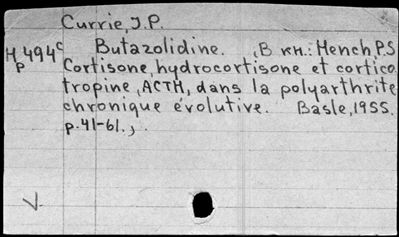 Currie, J.P.
Butazolidine. В кн.: Hench, P.S
Нр 494с
Cortisone, hydrocortisone et cortico
tropine, ACTH, dans la polyarthrite
chronique évolutive. Basle, 1955.
p. 41-61.,
V